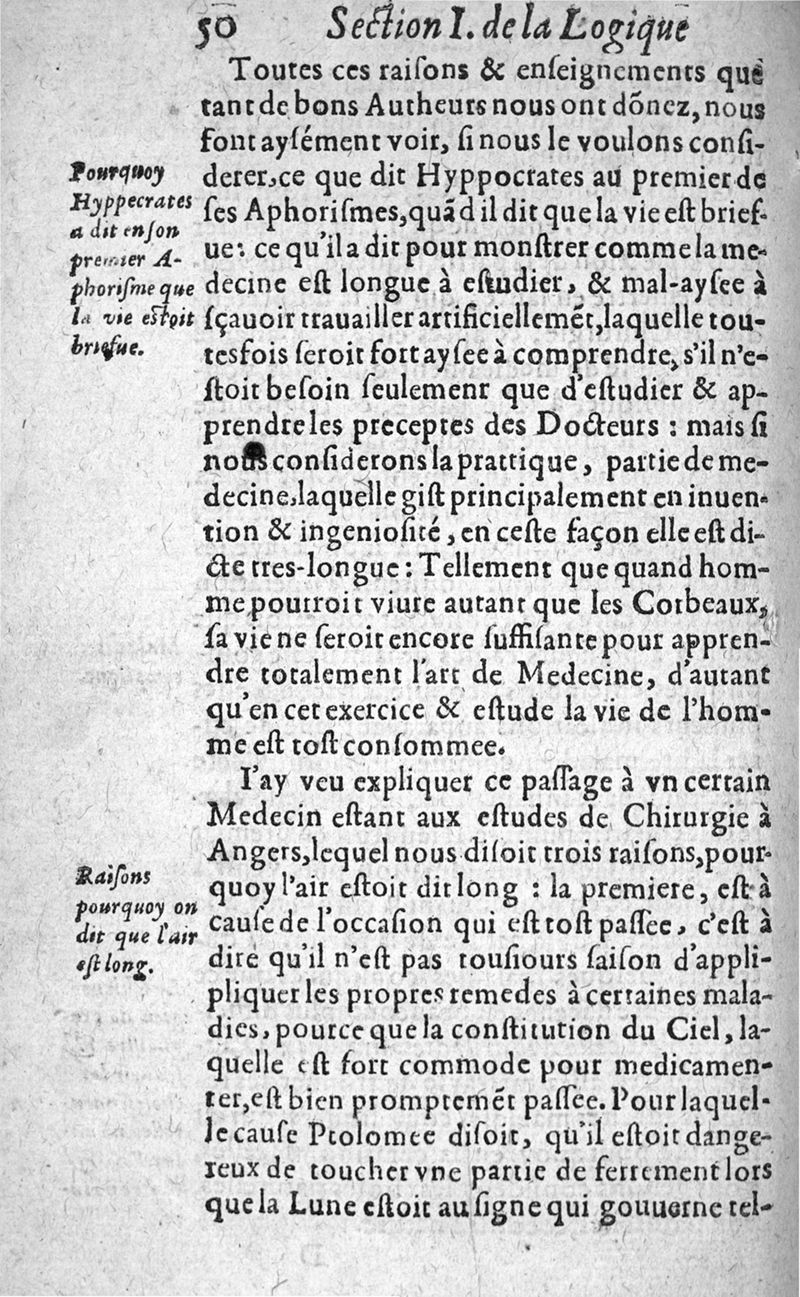 50 Section I. de la Logique
Toutes ces raiſons & enſeignements que
tant de bons Autheurs nous ont dõnez, nous
font ayſément voir, ſi nous le voulons conſi-
derer, ce que dit Hyppocrates au premier de
ſes Aphoriſmes, quãd il dit que la vie eſt brief-
ue: ce qu'il a dit pour monſtrer comme la me-
decine eſt longue à eſtudier, & mal-ayſee à
ſçauoir trauailler artificiellemẽt, laquelle tou-
tesfois ſeroit fort ayſee à comprendre, s'il n'e-
ſtoit beſoin ſeulement que d'eſtudier & ap-
prendre les preceptes des Docteurs : mais ſi
nous conſiderons la prattique, partie de me-
decine, laquelle giſt principalement en inuen-
tion & ingenioſité, en ceſte façon elle eſt di-
cte tres-longue : Tellement que quand hom-
me pourroit viure autant que les Corbeaux,
ſa vie ne ſeroit encore ſuffiſante pour appren-
dre totalement l'art de Medecine, d'autant
qu'en cet exercice & eſtude la vie de l'hom-
me eſt toſt conſommee.
I'ay veu expliquer ce paſſage à vn certain
Medecin eſtant aux eſtudes de Chirurgie à
Angers, lequel nous diſoit trois raiſons, pour-
quoy l'air eſtoit dit long : la premiere, eſt à
cauſe de l'occaſion qui eſt toſt paſſee, c'eſt à
dire qu'il n'eſt pas touſiours ſaiſon d'appli-
pliquer les propres remedes à certaines mala-
dies, pource que la conſtitution du Ciel, la-
quelle eſt fort commode pour medicamen-
ter, eſt bien promptemẽt paſſee. Pour laquel-
le cauſe Ptolomee diſoit, qu'il eſtoit dange-
reux de toucher vne partie de ferrement lors
que la Lune eſtoit au ſigne qui gouuerne tel-
Pourquoy
Hyppecrates
a dit en ſon
premier A-
phoriſme que
la vie eſtoit
briefue.
Raiſons
pourquoy on
dit que l'air
eſt long.